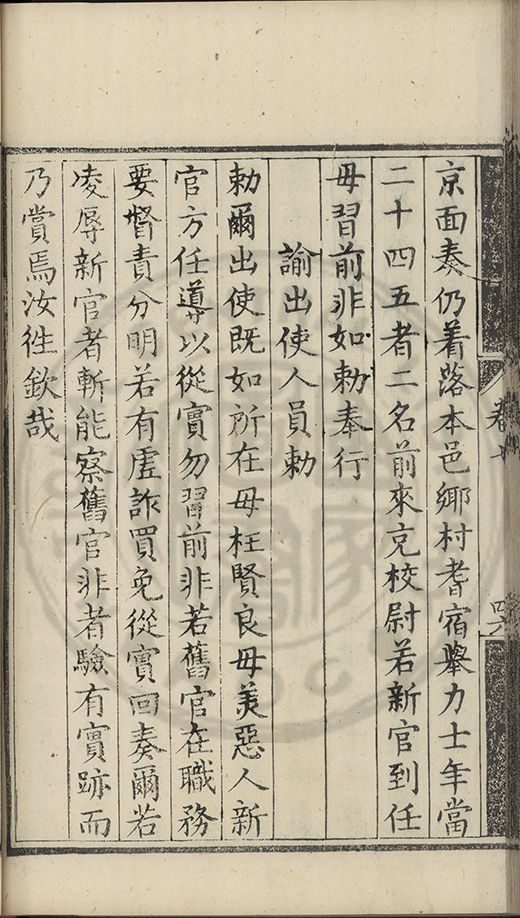 京面奏仍着落本邑鄉村耆宿舉力士年當
二十四五者二名前來充校尉若新官到任
毋習前非如勅奉行
諭出使人員勅
勅爾出使既如所在毋枉賢良毋羙惡人新
官方任導以從實勿習前非若舊官在職務
要督責分明若有虛詐買免從實回奏爾若
凌辱新官者斬能察舊官非者驗有實跡而
乃賞焉汝徃欽哉
卷十
四六